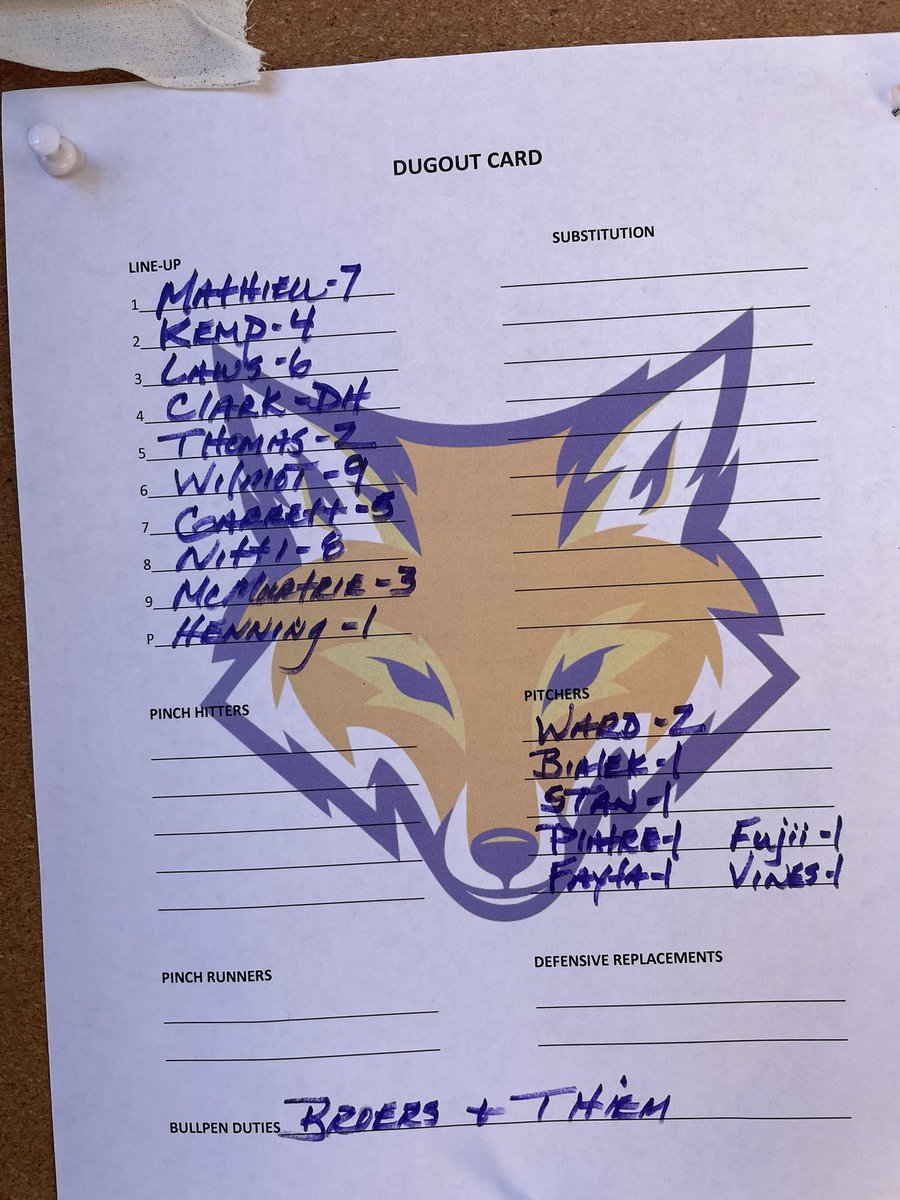 DUGOUT CARD
LINE-UP
1 MATHIEU-7
2 KEMP-4
3 LAWS-6
4 CLARK-DH
5 THOMAS-2
6 WILMOT-9
7 GARRETT-5
8 NITTI-8
9 McMURTRIE-3
P HENNING-1
SUBSTITUTION
PINCH HITTERS
PITCHERS
WARD-2
BIALEK-1
STAN-1
Fujii-1
FAYTA-1 VINES-1
PINCH RUNNERS
DEFENSIVE REPLACEMENTS
BULLPEN DUTIES BROERS + THIEM